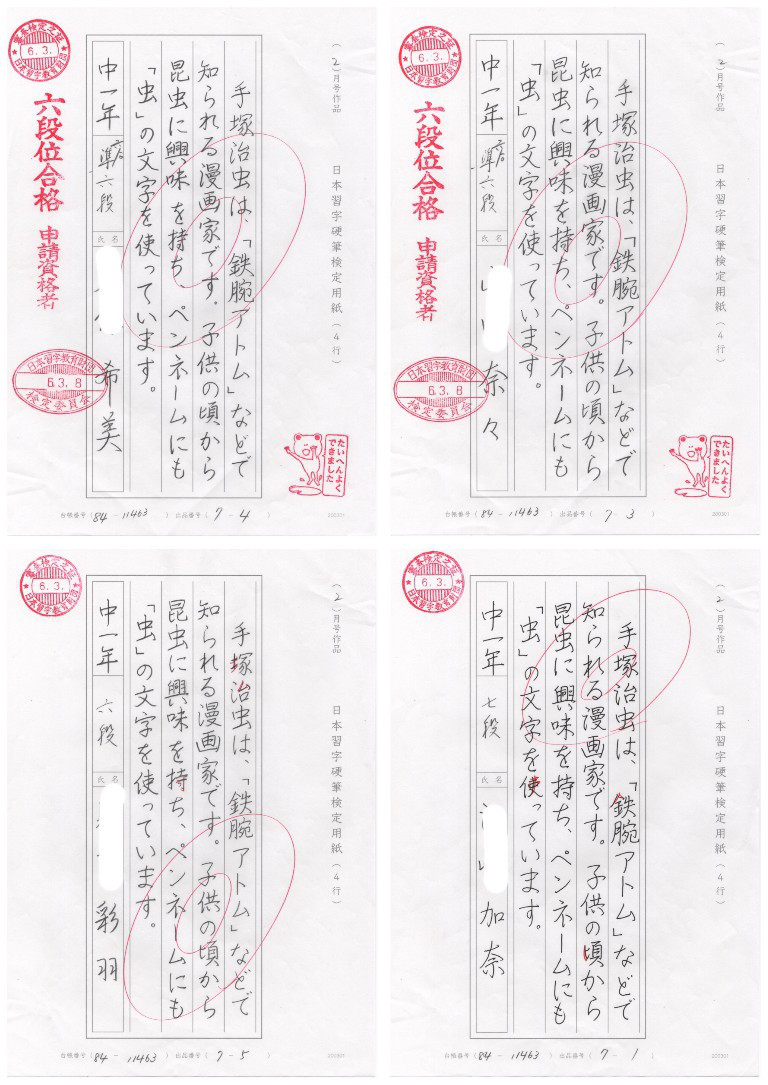 (2)月号作品
日本習字硬筆検定用紙(4行)
手塚治虫は、「鉄腕アトム」などで
知られる漫画家です。子供の頃から
昆虫に興味を持ち、ペンネームにも
「虫」の文字を使っています。
中一年
準六段
氏名
希美
審査検定之証
6.3.
日本習字教育財団
六段位合格
申請資格者
日本習字教育財団
6.3.8
検定委員会
たいへんよく
できました
台帳番号(84-11463)出品番号(7-4)
200301
(2)月号作品
日本習字硬筆検定用紙(4行)
手塚治虫は、「鉄腕アトム」などで
知られる漫画家です。子供の頃から
昆虫に興味を持ち、ペンネームにも
「虫」の文字を使っています。
中一年
準六段
氏名
奈々
審査検定之証
6.3.
日本習字教育財団
六段位合格
申請資格者
日本習字教育財団
6.3.8
検定委員会
たいへんよく
できました
台帳番号(84-11463)出品番号(7-3)
200301
(2)月号作品
日本習字硬筆検定用紙(4行)
手塚治虫は、「鉄腕アトム」などで
知られる漫画家です。子供の頃から
昆虫に興味を持ち、ペンネームにも
「虫」の文字を使っています。
中一年
六段
氏名
彩羽
審査検定之証
6.3.
日本習字教育財団
台帳番号(84-11463)出品番号(7-5)
200301
(2)月号作品
日本習字硬筆検定用紙(4行)
手塚治虫は、「鉄腕アトム」などで
知られる漫画家です。子供の頃から
昆虫に興味を持ち、ペンネームにも
「虫」の文字を使っています。
中一年
七段
氏名
加奈
審査検定之証
6.3.
日本習字教育財団
台帳番号(84-11463)出品番号(7-1)
200301